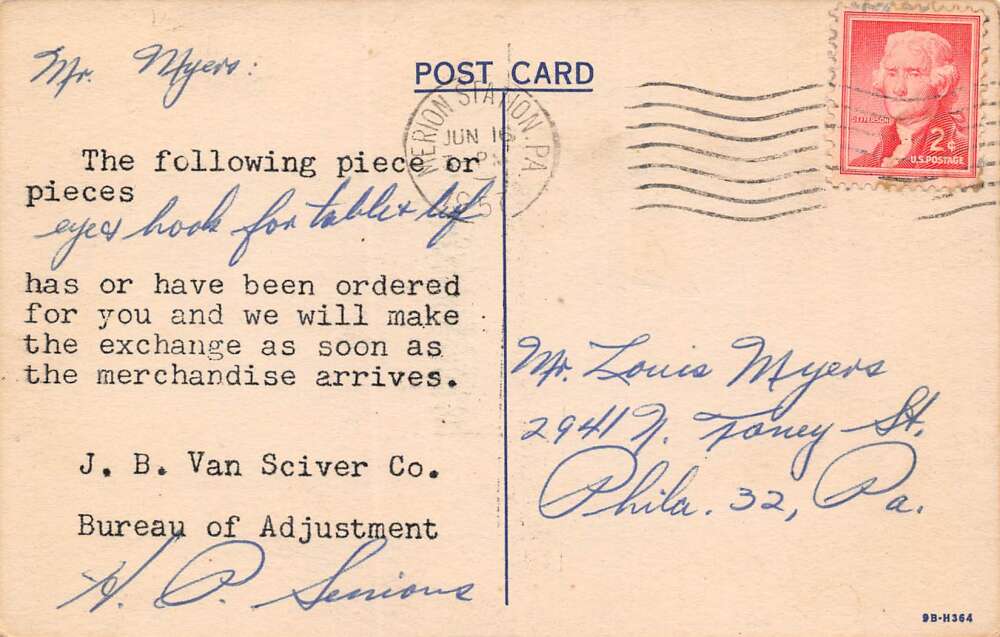 Mr. Myers:
The following piece or
pieces
hook for table
has or have been ordered
for you and we will make
the exchange as soon as
the merchandise arrives.
J. B. Van Sciver Co.
Bureau of Adjustment
H. P.
POST CARD
MERION STATION, PA
JUN 16
PM
JEFFERSON
2¢
U.S. POSTAGE
Mr. Louis Myers
2941 N. Toney St.
Phila. 32, Pa.
9B-H364